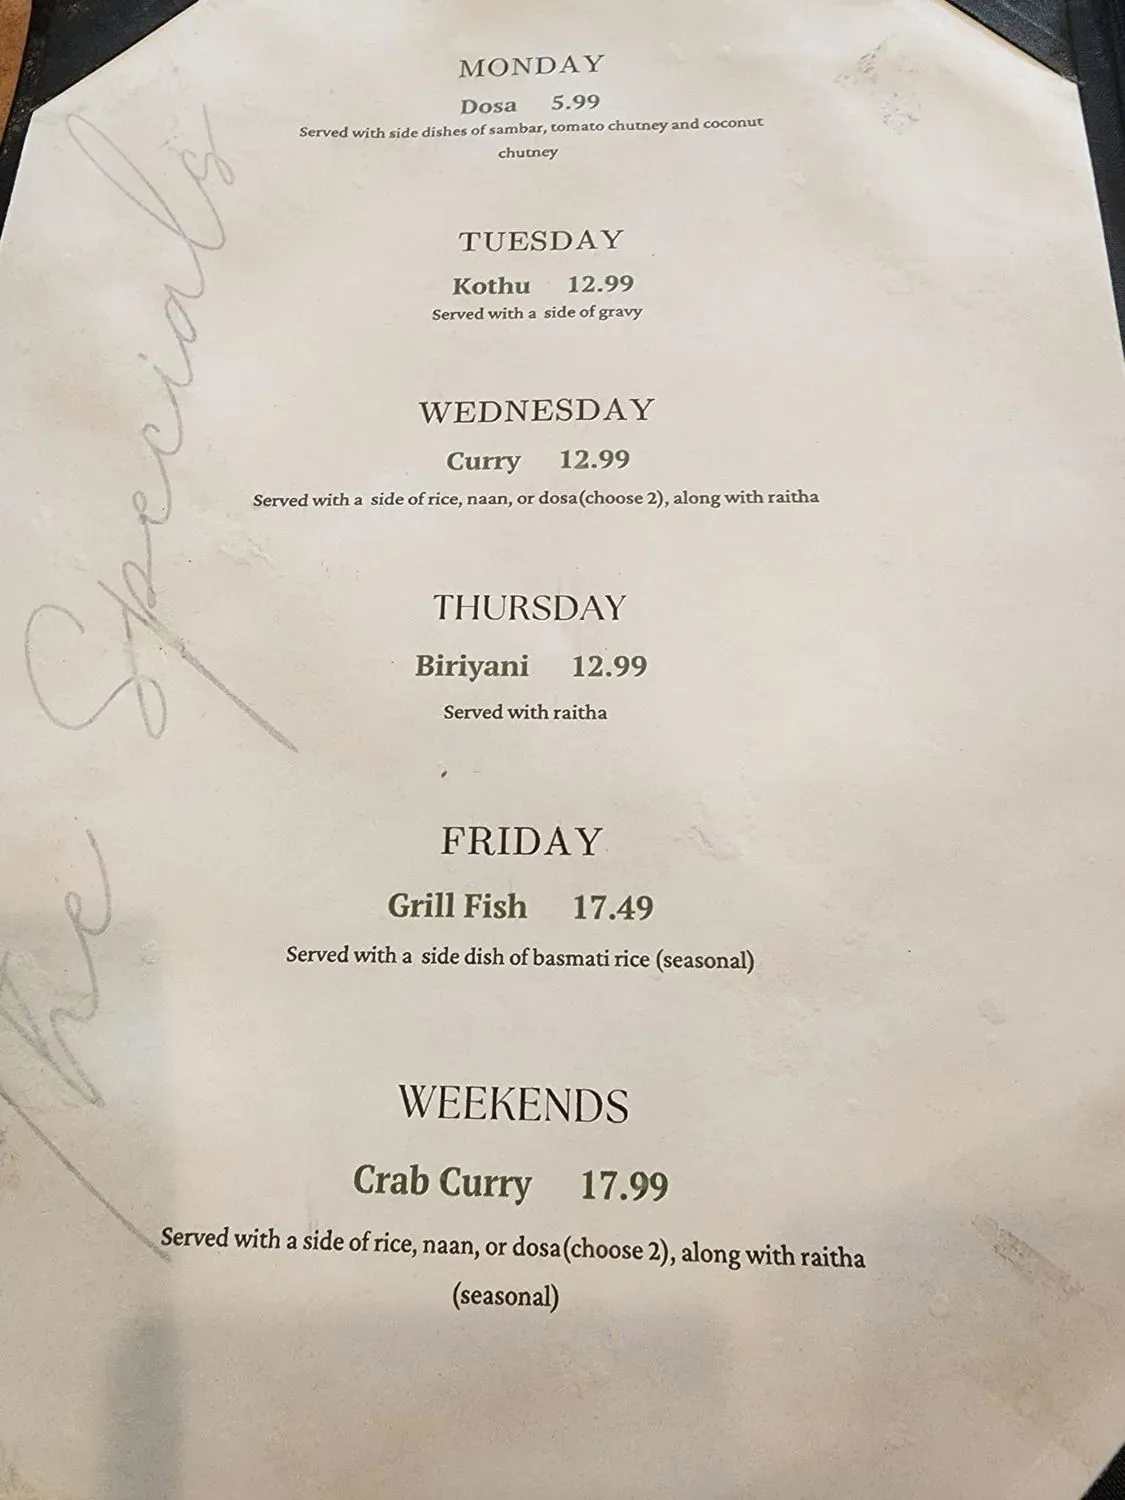 The Specials
MONDAY
Dosa 5.99
Served with side dishes of sambar, tomato chutney and coconut
chutney
TUESDAY
Kothu 12.99
Served with a side of gravy
WEDNESDAY
Curry 12.99
Served with a side of rice, naan, or dosa(choose 2), along with raitha
THURSDAY
Biriyani 12.99
Served with raitha
FRIDAY
Grill Fish 17.49
Served with a side dish of basmati rice (seasonal)
WEEKENDS
Crab Curry 17.99
Served with a side of rice, naan, or dosa(choose 2), along with raitha
(seasonal)